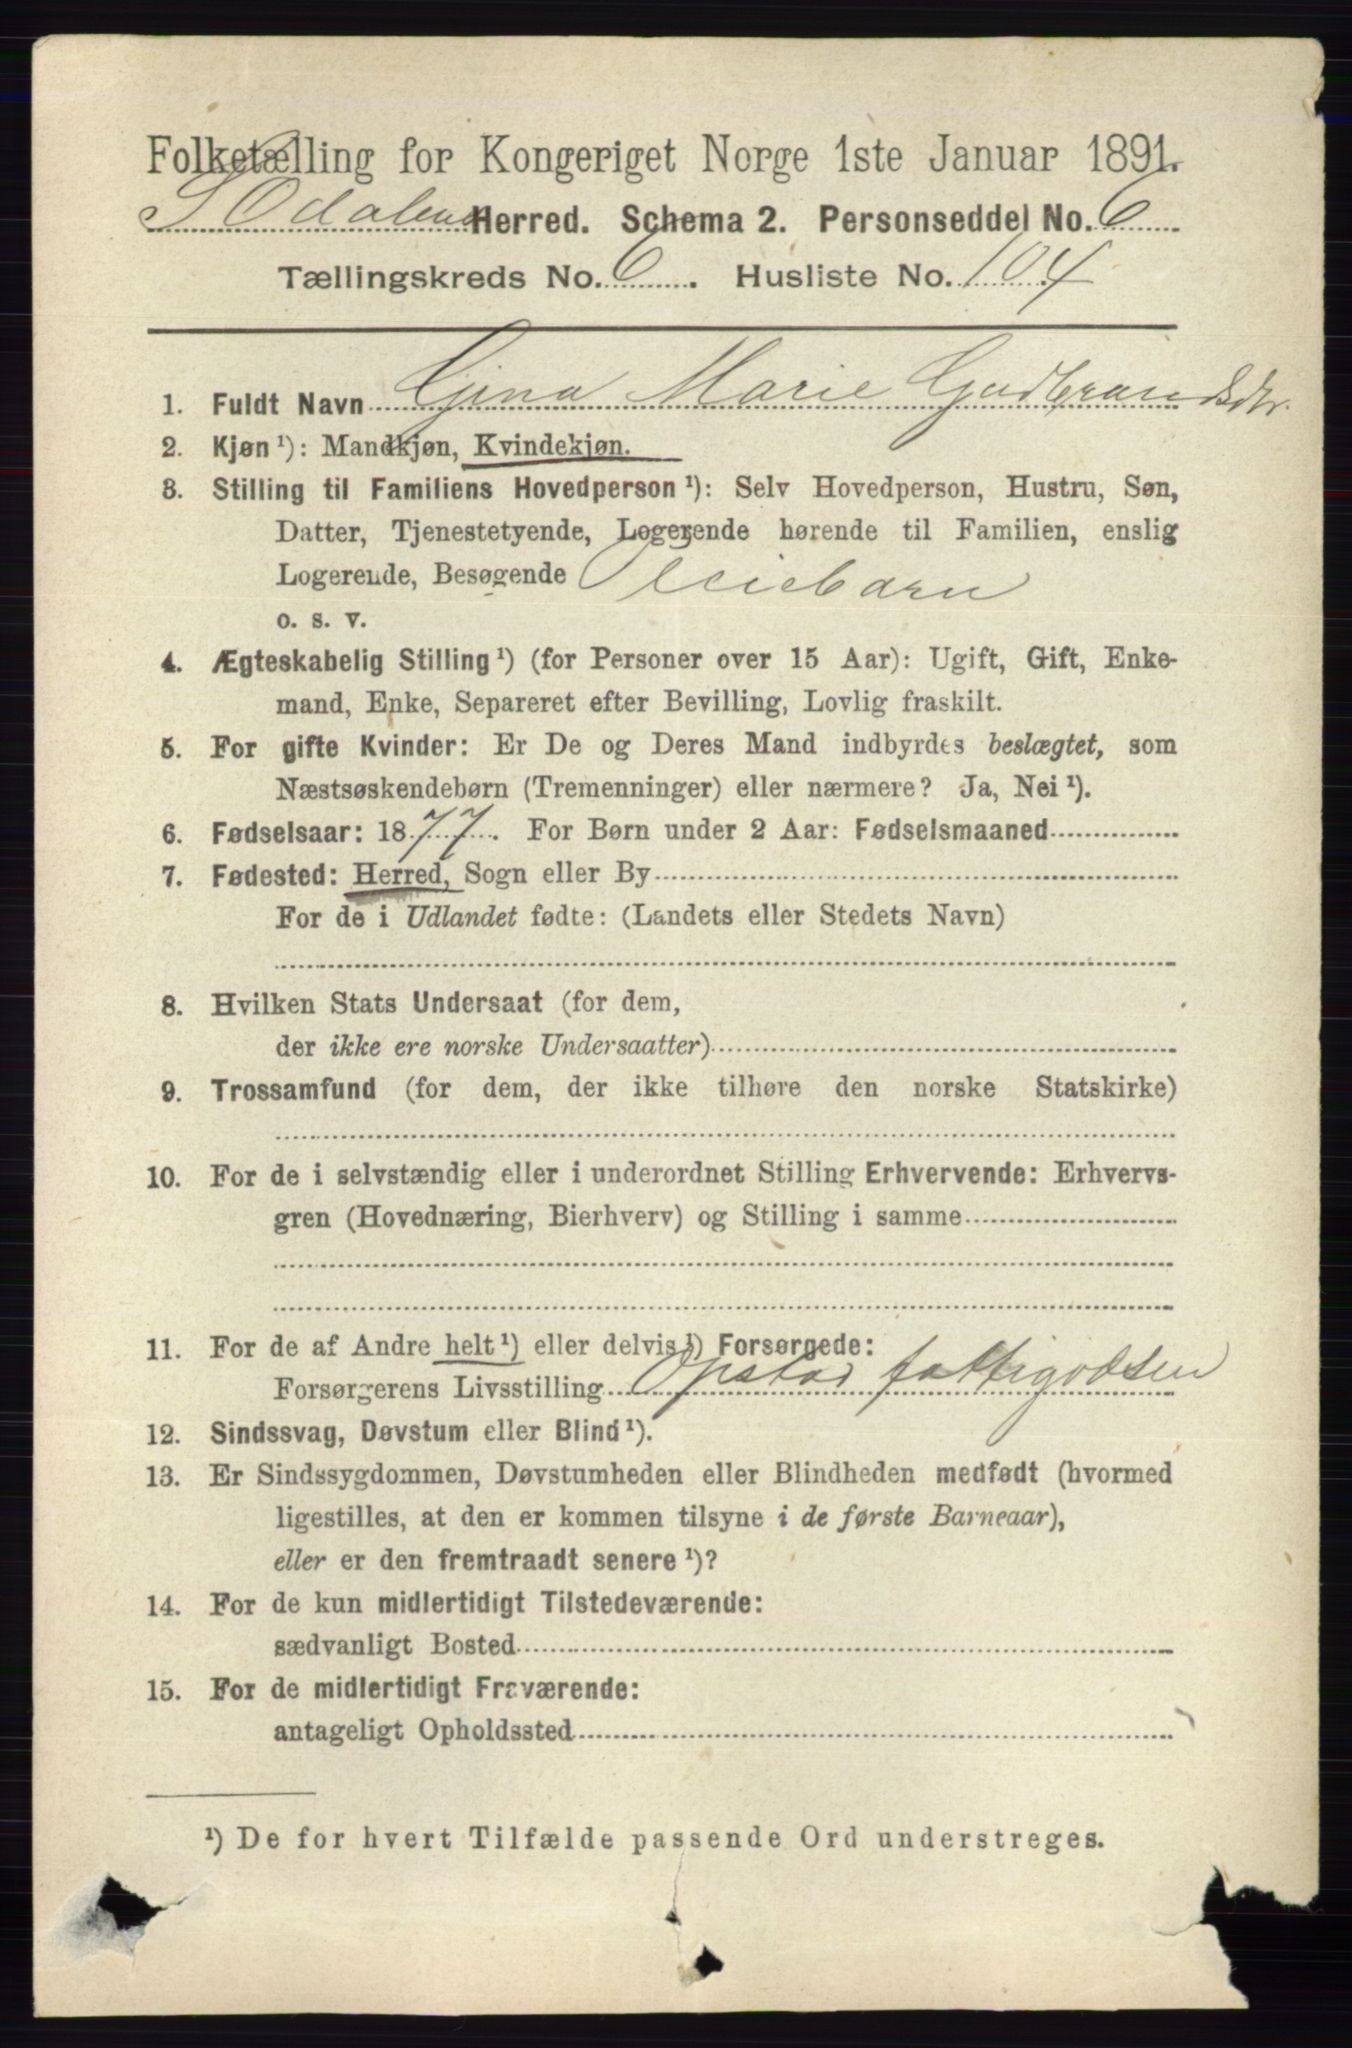 Folketælling for Kongeriget Norge 1ste Januar 1891.
S Odalens Herred. Schema 2. Personseddel No. 6
Tællingskreds No. 6. Husliste No. 104
1. Fuldt Navn Gina Marie Gudbrandsdtr.
2. Kjøn ¹): Mandkjøn, Kvindekjøn.
3. Stilling til Familiens Hovedperson ¹): Selv Hovedperson, Hustru, Søn,
Datter, Tjenestetyende, Logerende hørende til Familien, enslig
Logerende, Besøgende Pleiebarn
o. s. v.
4. Ægteskabelig Stilling ¹) (for Personer over 15 Aar): Ugift, Gift, Enke-
mand, Enke, Separeret efter Bevilling, Lovlig fraskilt.
5. For gifte Kvinder: Er De og Deres Mand indbyrdes beslægtet, som
Næstsøskendebørn (Tremenninger) eller nærmere? Ja, Nei ¹).
6. Fødselsaar: 1877. For Børn under 2 Aar: Fødselsmaaned
7. Fødested: Herred, Sogn eller By
For de i Udlandet fødte: (Landets eller Stedets Navn)
8. Hvilken Stats Undersaat (for dem,
der ikke ere norske Undersaatter)
9. Trossamfund (for dem, der ikke tilhøre den norske Statskirke)
10. For de i selvstændig eller i underordnet Stilling Erhvervende: Erhvervs-
gren (Hovednæring, Bierhverv) og Stilling i samme
11. For de af Andre helt ¹) eller delvis ¹) Forsørgede:
Forsørgerens Livsstilling Opstad fattigvæsen
12. Sindssvag, Døvstum eller Blind ¹).
13. Er Sindssygdommen, Døvstumheden eller Blindheden medfødt (hvormed
ligestilles, at den er kommen tilsyne i de første Barneaar),
eller er den fremtraadt senere ¹)?
14. For de kun midlertidigt Tilstedeværende:
sædvanligt Bosted
15. For de midlertidigt Fraværende:
antageligt Opholdssted
¹) De for hvert Tilfælde passende Ord understreges.